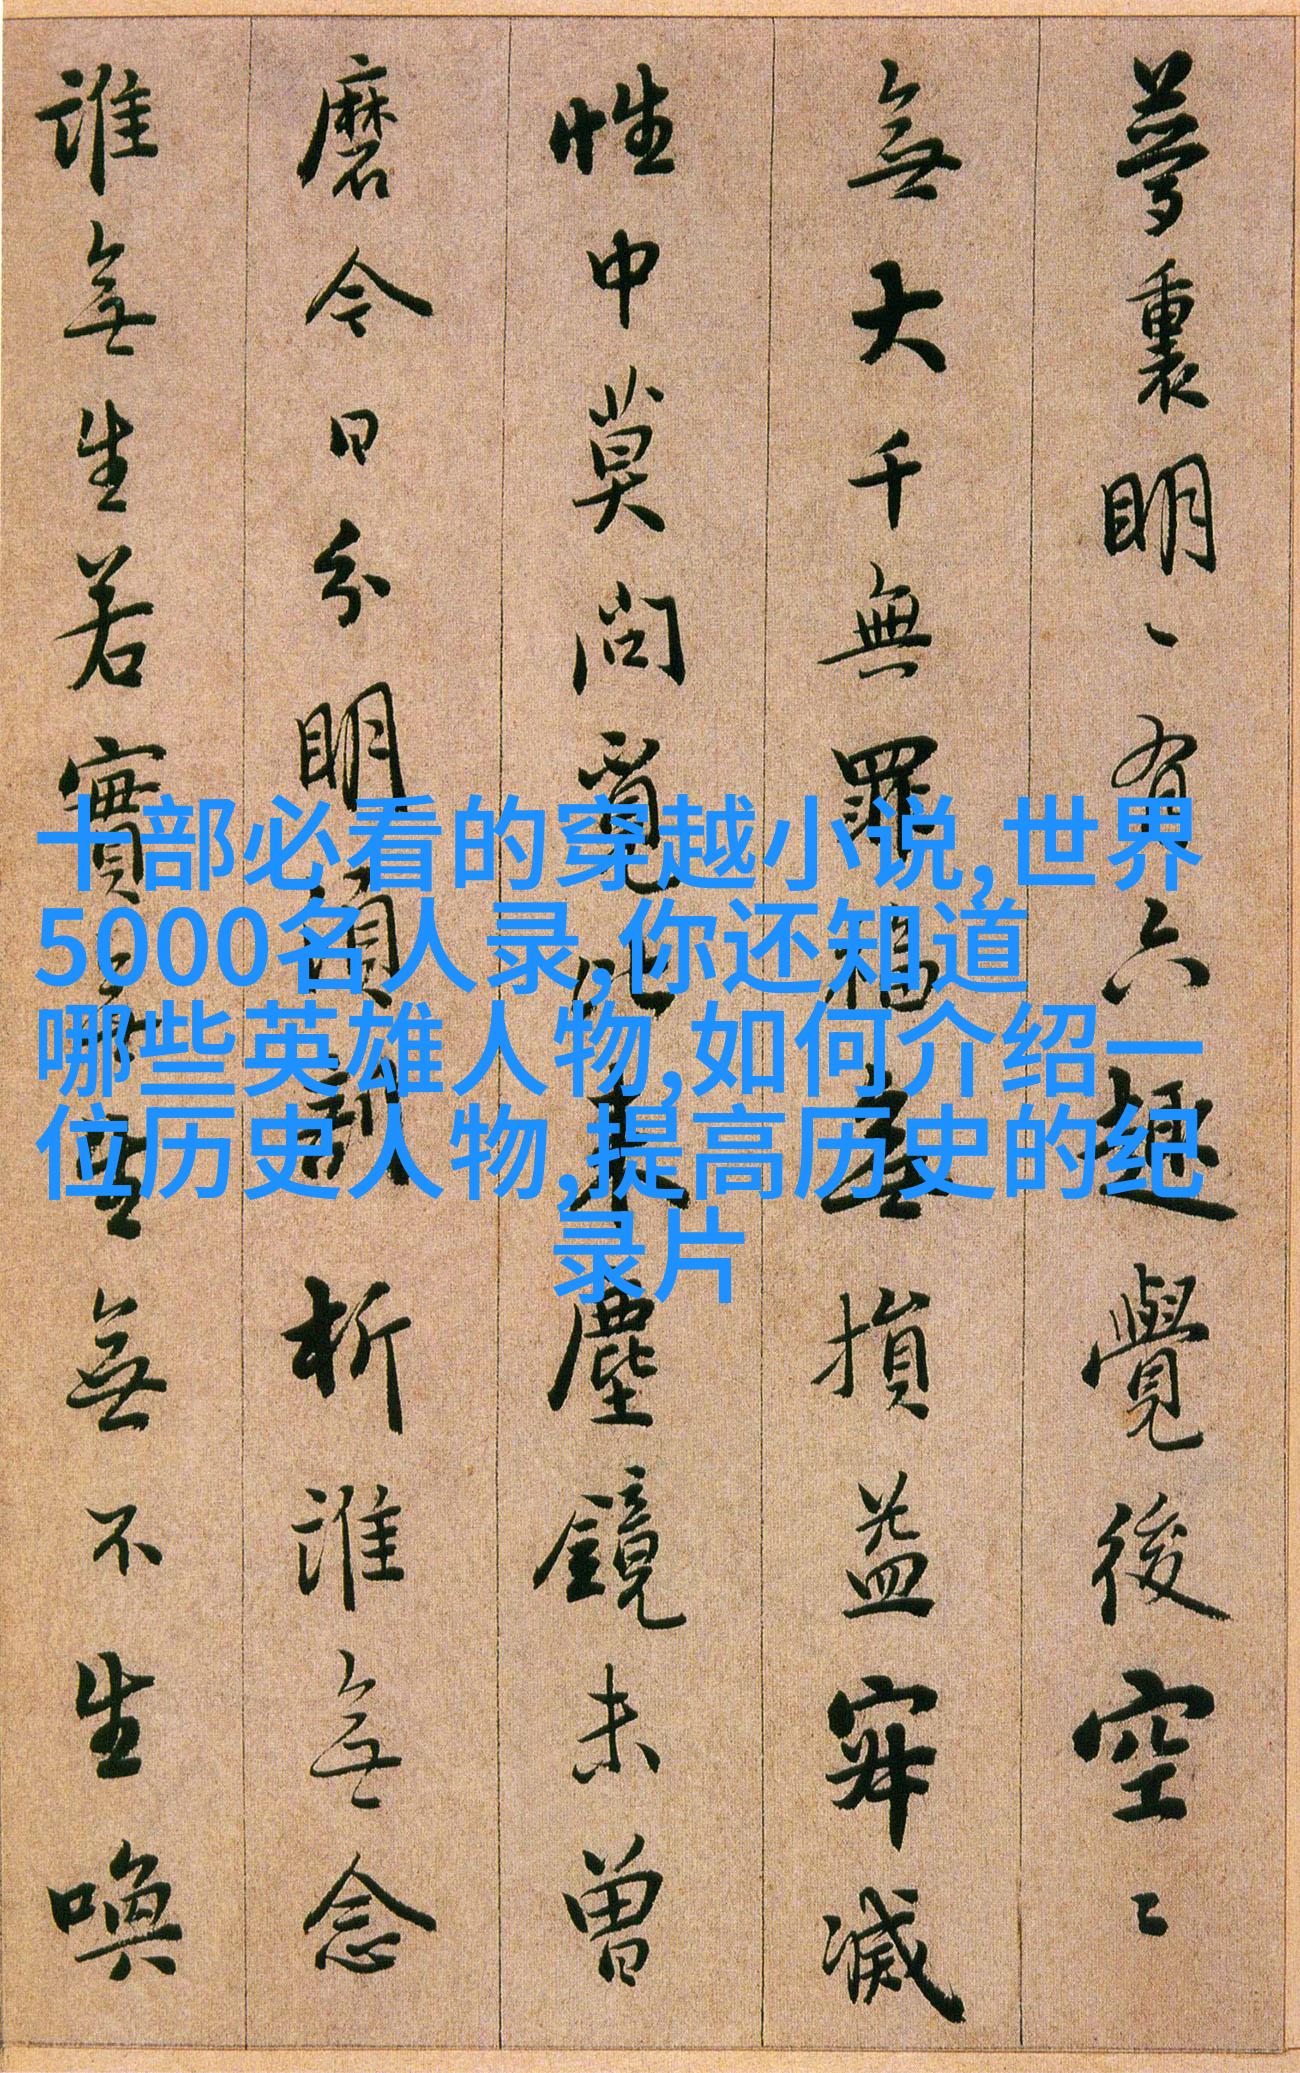 十部必看的穿越小说,世界
5000名人录,你还知道
哪些英雄人物,如何介绍一
位历史人物,提高历史的纪
录片
夢裏明〻有六趣覺後空〻
無大千無罪福無損益寂滅
性中莫問覓比来塵鏡未曾
磨今日分明須剖析誰無念
誰無生若實無不生喚